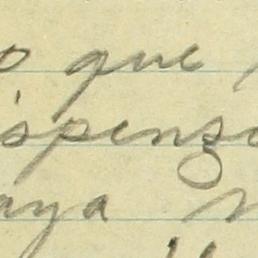 o que
ispenso
aya n